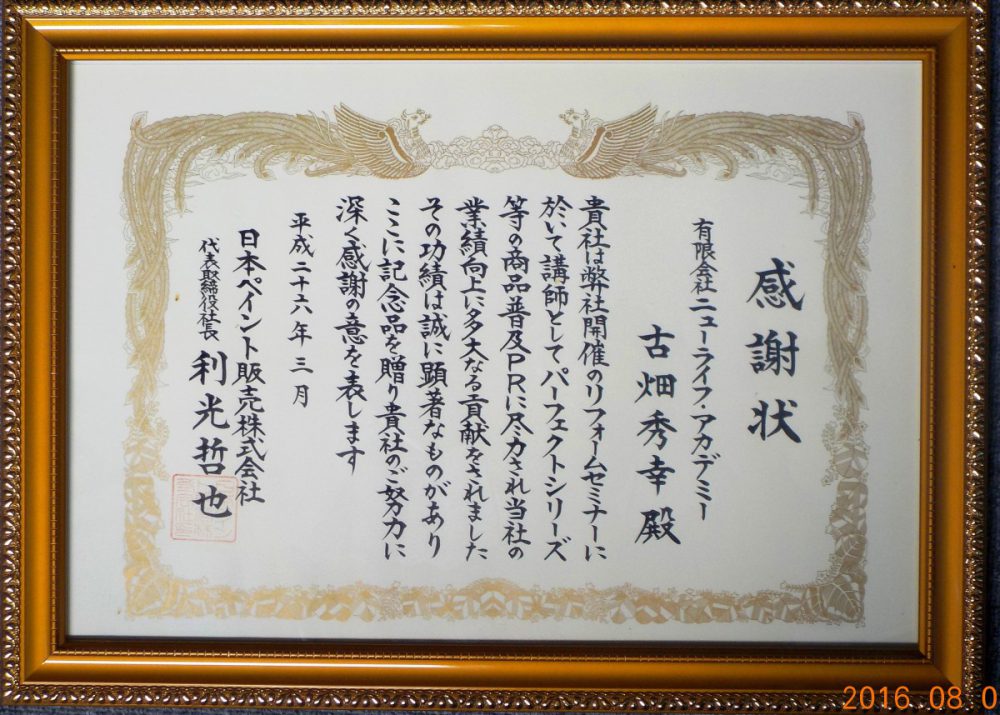 感謝状
有限会社 ニューライフ・アカデミー
古畑秀幸 殿
貴社は弊社開催のリフォームセミナーに
於いて講師としてパーフェクトシリーズ
等の商品普及PRに尽力され当社の
業績向上に多大なる貢献をされました
その功績は誠に顕著なものがあり
ここに記念品を贈り貴社のご努力に
深く感謝の意を表します
平成二十六年三月
日本ペイント販売株式会社
代表取締役社長 利光哲也
2016.08.0